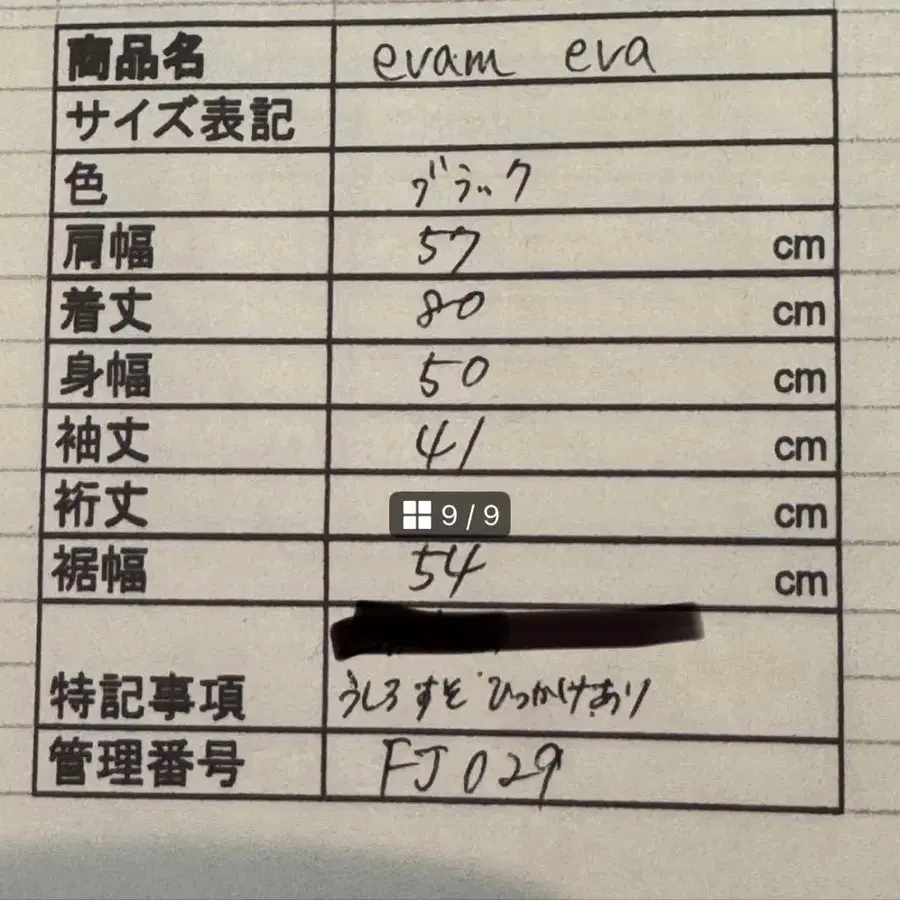 商品名 evam eva
サイズ表記
色 ブラック
肩幅 57 cm
着丈 80 cm
身幅 50 cm
袖丈 41 cm
裄丈 cm
9 / 9
裾幅 54 cm
特記事項 うしろすそひっかけあり
管理番号 FJ029